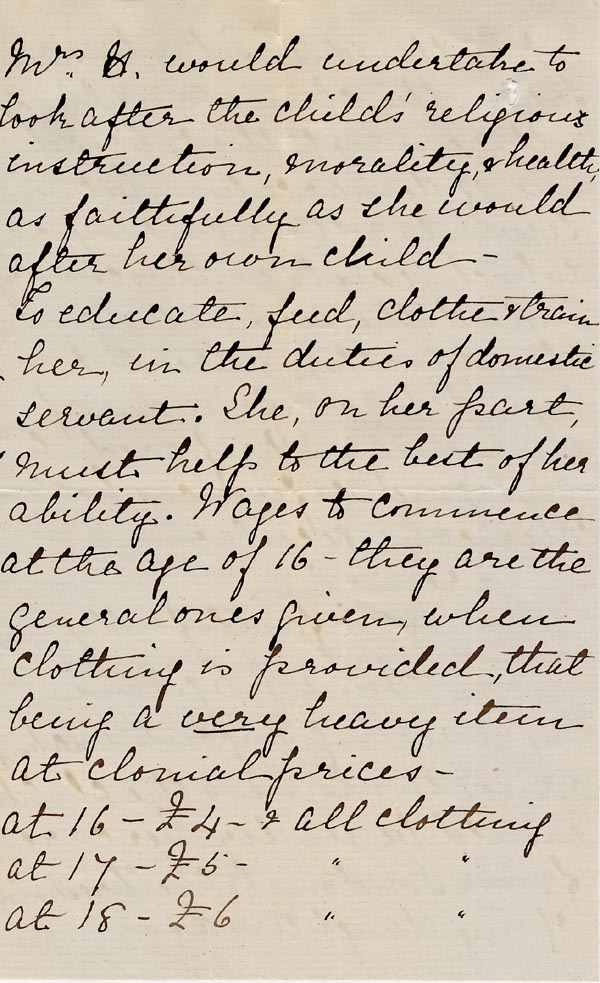 Mrs. H. would undertake to
look after the child's religious
instruction, morality, & health,
as faithfully as she would
after her own child -
To educate, feed, clothe & train
her, in the duties of domestic
servant. She, on her part,
must help to the best of her
ability. Wages to commence
at the age of 16 - they are the
general ones given, when
clothing is provided, that
being a very heavy item
at clonial prices -
at 16 - £4 - & all clothing
at 17 - £5 - " "
at 18 - £6 " "